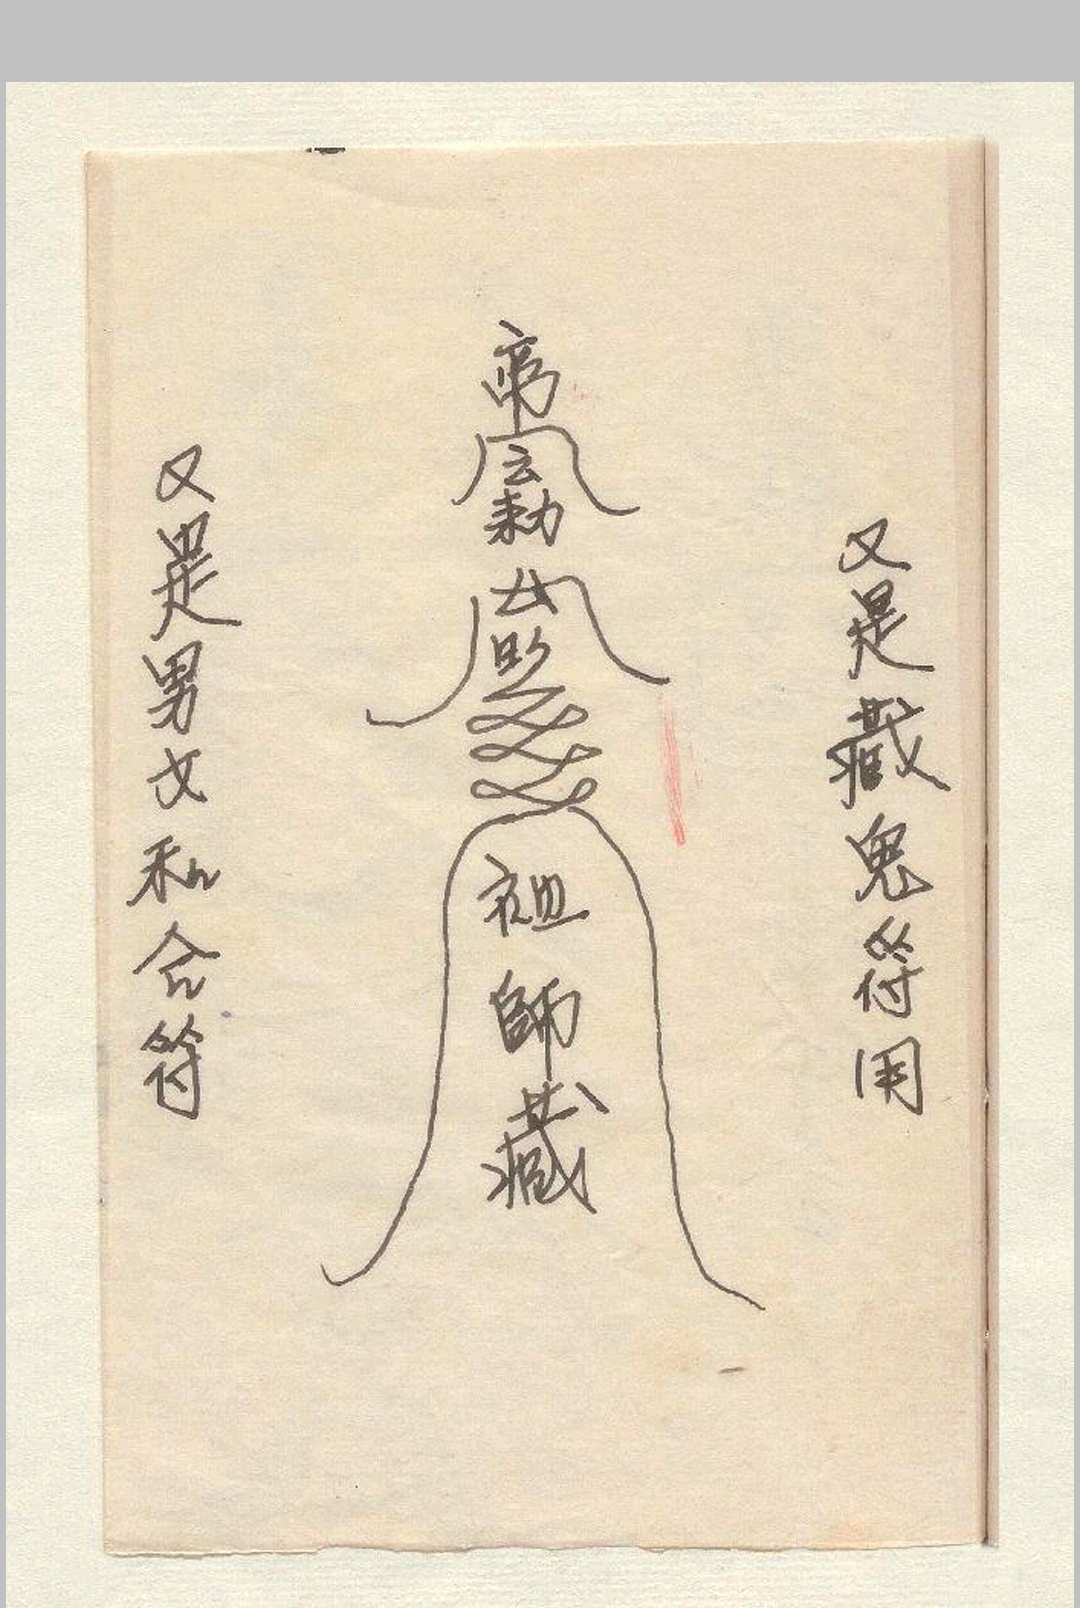 又是藏鬼符用
勅
祖師藏
又是男女和合符